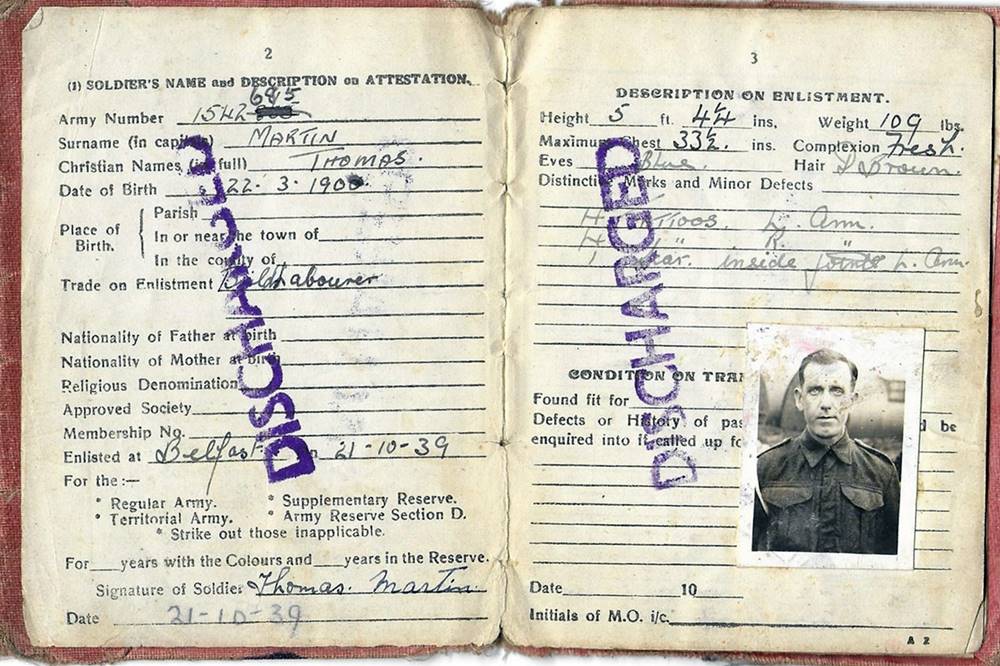 2
(1) SOLDIER'S NAME and DESCRIPTION on ATTESTATION.
6915
Army Number 1542
Surname (in capitals) MARTIN
Christian Names (in full) THOMAS.
Date of Birth 22. 3. 1900.
Place of Birth.
Parish
In or near the town of
In the county of
Trade on Enlistment Labourer
Nationality of Father at birth
Nationality of Mother at birth
Religious Denomination
Approved Society
Membership No.
Enlisted at Belfast On 21-10-39
For the :—
* Regular Army. * Supplementary Reserve.
* Territorial Army. * Army Reserve Section D.
* Strike out those inapplicable.
For years with the Colours and years in the Reserve.
Signature of Soldier Thomas. Martin
Date 21-10-39
DISCHARGED
3
DESCRIPTION ON ENLISTMENT.
Height 5 ft. 4¼ ins. Weight 109 lbs.
Maximum Chest 33½. ins. Complexion Fresh.
Eyes Blue. Hair D Brown.
Distinctive Marks and Minor Defects
4 Tattoos. L. Arm.
4 " R. "
1 Scar. inside joint L. Arm.
CONDITION ON TRA
Found fit for
Defects or History of pas d be
enquired into if called up fo
Date 10
Initials of M.O. i/c.
A 2
DISCHARGED